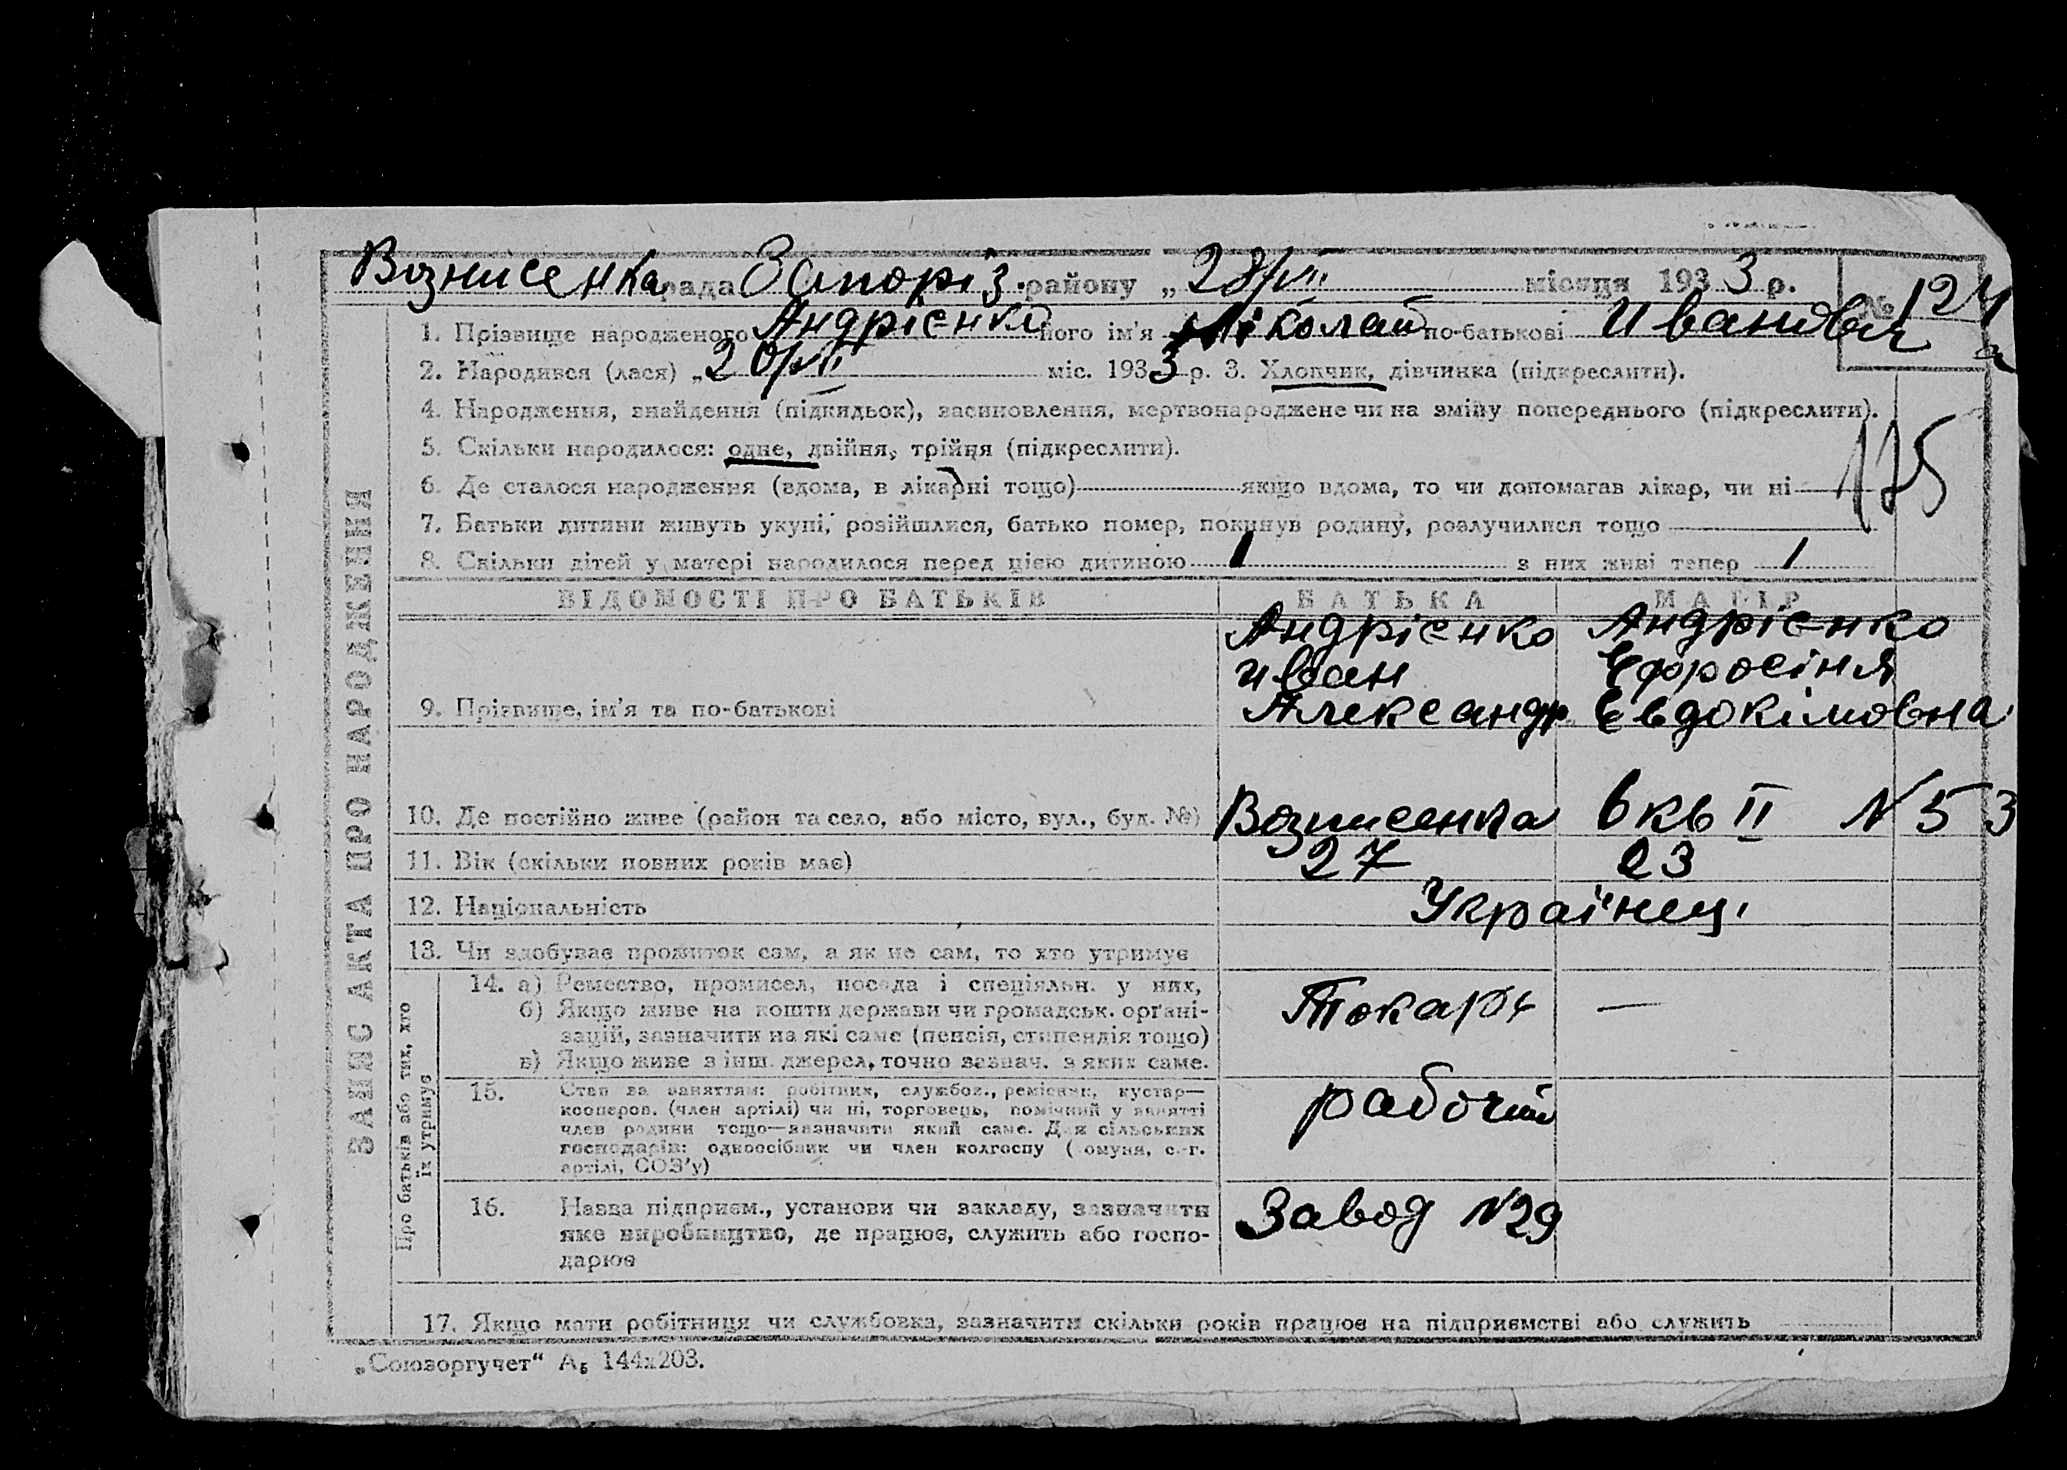 Вознисенка рада Запоріз. району „28/VII місяця 1933 р.
№ 124
1. Прізвище народженого Андрієнко його ім'я Ніколай по-батькові Иванович
2. Народився (лася) „20/VII міс. 1933 р. 3. Хлопчик, дівчинка (підкреслити).
4. Народження, знайдення (підкидьок), засиновлення, мертвонароджене чи на зміну попереднього (підкреслити).
175
5. Скільки народилося: одне, двійня, трійня (підкреслити).
6. Де сталося народження (вдома, в лікарні тощо) якщо вдома, то чи допомагав лікар, чи ні
7. Батьки дитини живуть укупі, розійшлися, батько помер, покинув родину, розлучилися тощо
8. Скільки дітей у матері народилося перед цією дитиною 1 з них живі тепер 1
ЗАПИС АКТА ПРО НАРОДЖЕННЯ
ВІДОМОСТІ ПРО БАТЬКІВ БАТЬКА МАТІР
9. Прізвище, ім'я та по-батькові
Андрієнко Андрієнко
Иван Ефросіня
Александр Евдокімовна
10. Де постійно живе (район та село, або місто, вул., буд. №) Вознисенка 6 кв II N 53
11. Вік (скільки повних років має) 27 23
12. Національність Українец.
13. Чи здобуває прожиток сам, а як не сам, то хто утримує
Про батьків або тих, хто
їх утримує
14. а) Ремество, промисел, посада і спеціяльн. у них,
б) Якщо живе на кошти держави чи громадськ. органі-
зацій, зазначити на які саме (пенсія, стипендія тощо)
в) Якщо живе з інш. джерел, точно зазнач. з яких саме.
Токарь —
15. Стан за заняттям: робітник, службов., ремісник, кустар—
кооперов. (член артілі) чи ні, торговець, помічний у занятті
член родини тощо—зазначити який саме. Для сільських
господарів: одноосібник чи член колгоспу (комуна, с.-г.
артілі, СОЗ'у)
рабочий
16. Назва підприєм., установи чи закладу, зазначити
яке виробництво, де працює, служить або госпо-
дарює
Завод N29
17. Якщо мати робітниця чи службовка, зазначити скільки років працює на підприємстві або служить
„Союзоргучет“ А₅ 144х203.